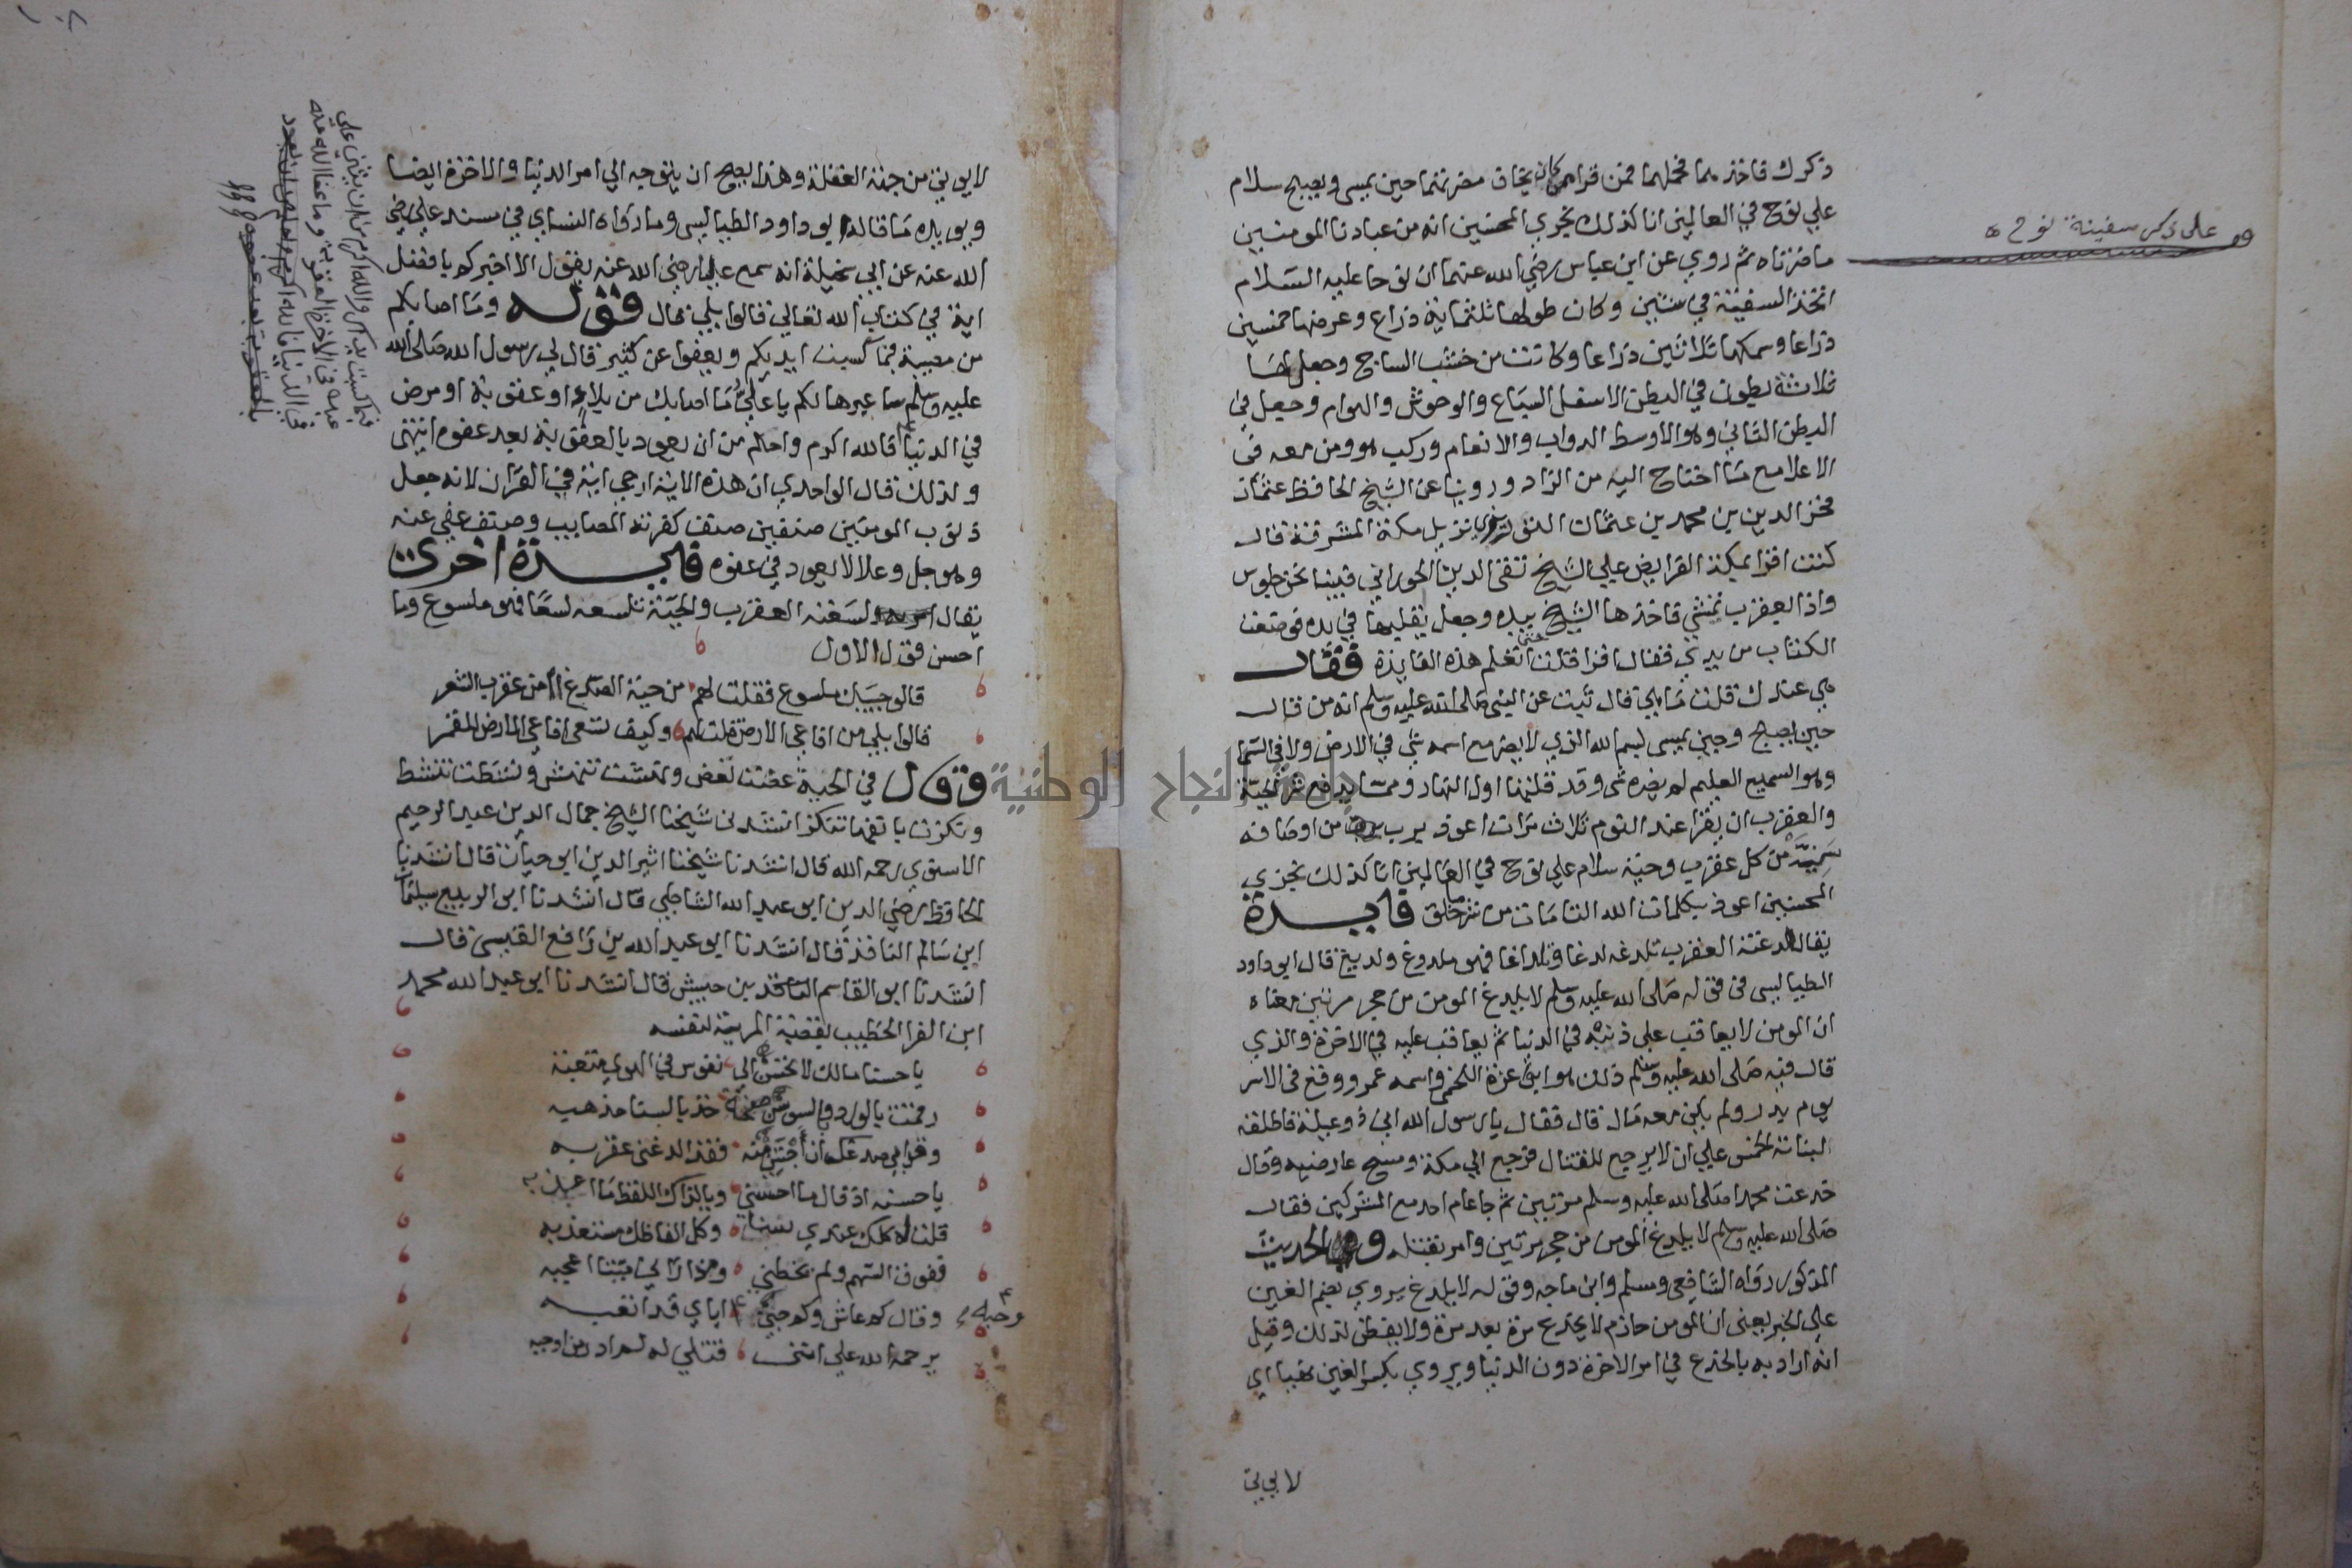 ذكرك فاخذ بما فحملهما فمن قراهما كان يخاف مضرتهما حين يمسى ويصبح سلام
علي نوح في العالمين انا كذلك نجزي المحسنين انه من عبادنا المومنين
ما ضرتاه ثم روي عن ابن عباس رضي الله عنهما ان نوحا عليه السلام
اتخذ السفينة في سنتين وكان طولها ثلثماية ذراع وعرضها خمسين
ذراعا وسمكها ثلاثين ذراعا وكانت من خشب الساج وجعل لها
ثلاثة بطون في البطن الاسفل السباع والوحوش والهوام وجعل في
البطن الثاني وهو الاوسط الدواب والانعام وركب هو ومن معه فى
الاعلا مع ما احتاج اليه من الزاد وروينا عن الشيخ الحافظ عثمان
فخر الدين بن محمد بن عثمان التوزري نزيل مكة المشرفة قال
كنت اقرا بمكة الفرايض علي الشيخ تقى الدين الحوراني فبينا نحن جلوس
واذا العقرب تمشي فاخذها الشيخ بيده وجعل يقلبها في يده فوضعت
الكتاب من يدي فقال اقرا فقلت حتى اتعلم هذه الفايدة فقال
هي عندك قلت ما هي قال ثبت عن النبي صلى الله عليه وسلم انه من قال
حين يصبح وحين يمسى بسم الله الذي لا يضر مع اسمه شي في الارض ولا في السما
وهو السميع العليم لم يضره شى وقد قلتها اول النهار ومما يدفع شر الحية
والعقرب ان يقرا عند النوم ثلاث مرات اعوذ برب من اوصافه
سمية من كل عقرب وحية سلام علي نوح في العالمين انا كذلك نجزي
المحسنين اعوذ بكلمات الله التامات من شر ما خلق فايدة
يقال لدغته العقرب تلدغه لدغا وتلداغا فهو ملدوغ ولديغ قال ابو داود
الطيالسى فى قوله صلى الله عليه وسلم لا يلدغ المومن من حجر مرتين معناه
ان المومن لا يعاقب على ذنبه في الدنيا ثم يعاقب عليه في الاخرة والذي
قال فيه صلى الله عليه وسلم ذلك هو ابو عزة الجمحي واسمه عمرو وقع فى الاسر
يوم بدر ولم يكن معه مال قال فقال يا رسول الله اني ذو عيلة فاطلقه
لبناته الخمس علي ان لا يرجع للقتال فرجع الي مكة ومسح عارضيه وقال
خدعت محمدا صلى الله عليه وسلم مرتين ثم جا عام احد مع المشركين فقال
صلى الله عليه وسلم لا يلدغ المومن من حجر مرتين وامر بقتله والحديث
المذكور رواه الشافعى ومسلم وابن ماجه وقوله لا يلدغ يروي بضم الغين
على الخبر يعنى ان المومن حازم لا يخدع مرة بعد مرة ولا يفطن لذلك وقيل
انه اراد به بالخدع في امر الاخرة دون الدنيا ويروي بكسر الغين نهيا اي
لا يوتى
على ذكر سفينة نوح
لا يوتي من جهة الغفلة وهذا يصح ان يتوجه الي امر الدنيا والاخرة ايضا
ويويده ما قاله ابو داود الطيالسى وما رواه النساي في مسند علي رضي
الله عنه عن ابي سخيلة انه سمع عليا رضي الله عنه يقول الا اخبركم بافضل
اية في كتاب الله تعالي قالوا بلي قال قوله وما اصابكم
من مصيبة فبما كسبت ايديكم ويعفوا عن كثير قال لي رسول الله صلى الله
عليه وسلم ساعبرها لكم يا علي ما اصابك من بلاء او عقوبة او مرض
في الدنيا فالله اكرم واحلم من ان يعود بالعقوبة بعد عفوه انتهى
ولذلك قال الواحدي ان هذه الاية ارجى اية في القران لانه جعل
ذنوب المومنين صنفين صنف كفرته المصايب وصنف عفي عنه
وهو جل وعلا لا يعود في عفوه فايدة اخرى
يقال لسعته العقرب والحية تلسعه لسعا فهو ملسوع وما
احسن قول الاول
قالو حبيبك ملسوع فقلت لهم من حية الصدغ ام من عقرب الشعر
قالوا بلي من افاعي الارض قلت لهم وكيف تسعي افاعي الارض للقمر
وتقول في الحية عضت تعض ونهشت تنهش ونشطت تنشط
ونكزت بانفها تنكز انشدنى شيخنا الشيخ جمال الدين عبد الرحيم
الاسنوي رحمه الله قال انشدنا شيخنا اثير الدين ابو حيان قال انشدنا
الحافظ رضي الدين ابو عبد الله الشاطبي قال انشدنا ابو الربيع سليمان
ابن سالم الناقد قال انشدنا ابو عبد الله بن رافع القيسي قال
انشدنا ابو القاسم الناقد بن حبيش قال انشدنا ابو عبد الله محمد
ابن الفرا الخطيب بقصبة المرية لنفسه
يا حسنا مالك لا تحسن الي نفوس في الهوي متعبة
رقمت بالورد وبالسوسن صفحة خد بالسنا مذهبه
وقد ابي صدغك ان اجتني منه فقد الدغني عقربه
يا حسنه اذ قال ما احسني ويا لذاك اللفظ ما اعذبه
قلت له كلك عندي سنا وكل الفاظك مستعذبه
ففوق السهم ولم يخطني ومذ راني ميتا اعجبه
وقال كم عاش وكم حبني اياي قد اتعبه
وحبه
يرحمه الله علي انني قتلي له لم ادر من اوجبه
جامعة النجاح الوطنية